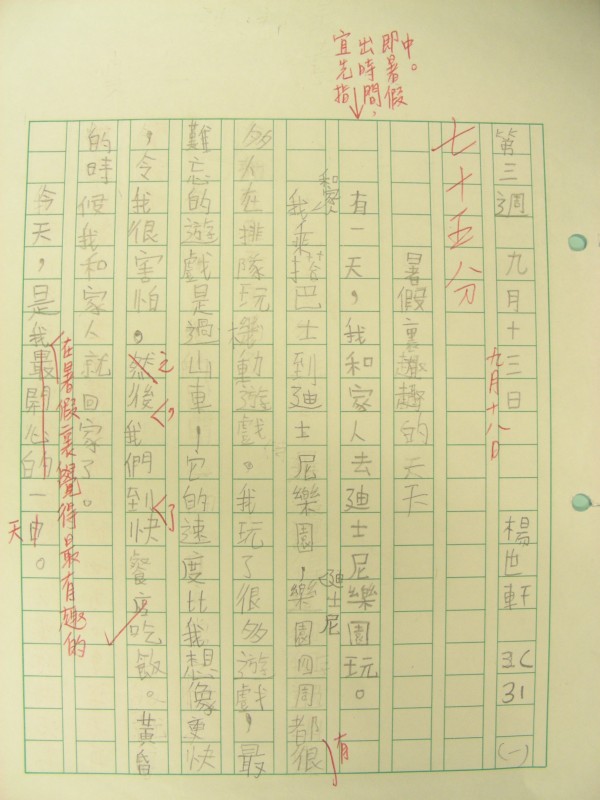 宜先指
出時間，
即暑假
中。
第三週 九月十三日 楊 軒 3C 31 (一)
九月十八日
七十五分
暑假裏 趣的 天
有一天，我和家人去廸士尼樂園玩。
和家人
我乘搭巴士到廸士尼樂園，樂園四周都很
廸士尼
有
多人在排隊玩機動遊戲。我玩了很多遊戲，最
難忘的遊戲是過山車，它的速度比我想像更快
，令我很害怕。然後我們到快餐店吃飯。黃昏
之
，
了
的時候我和家人就回家了。
在暑假裏覺得最有趣的
今天，是我最開心的一
天 。